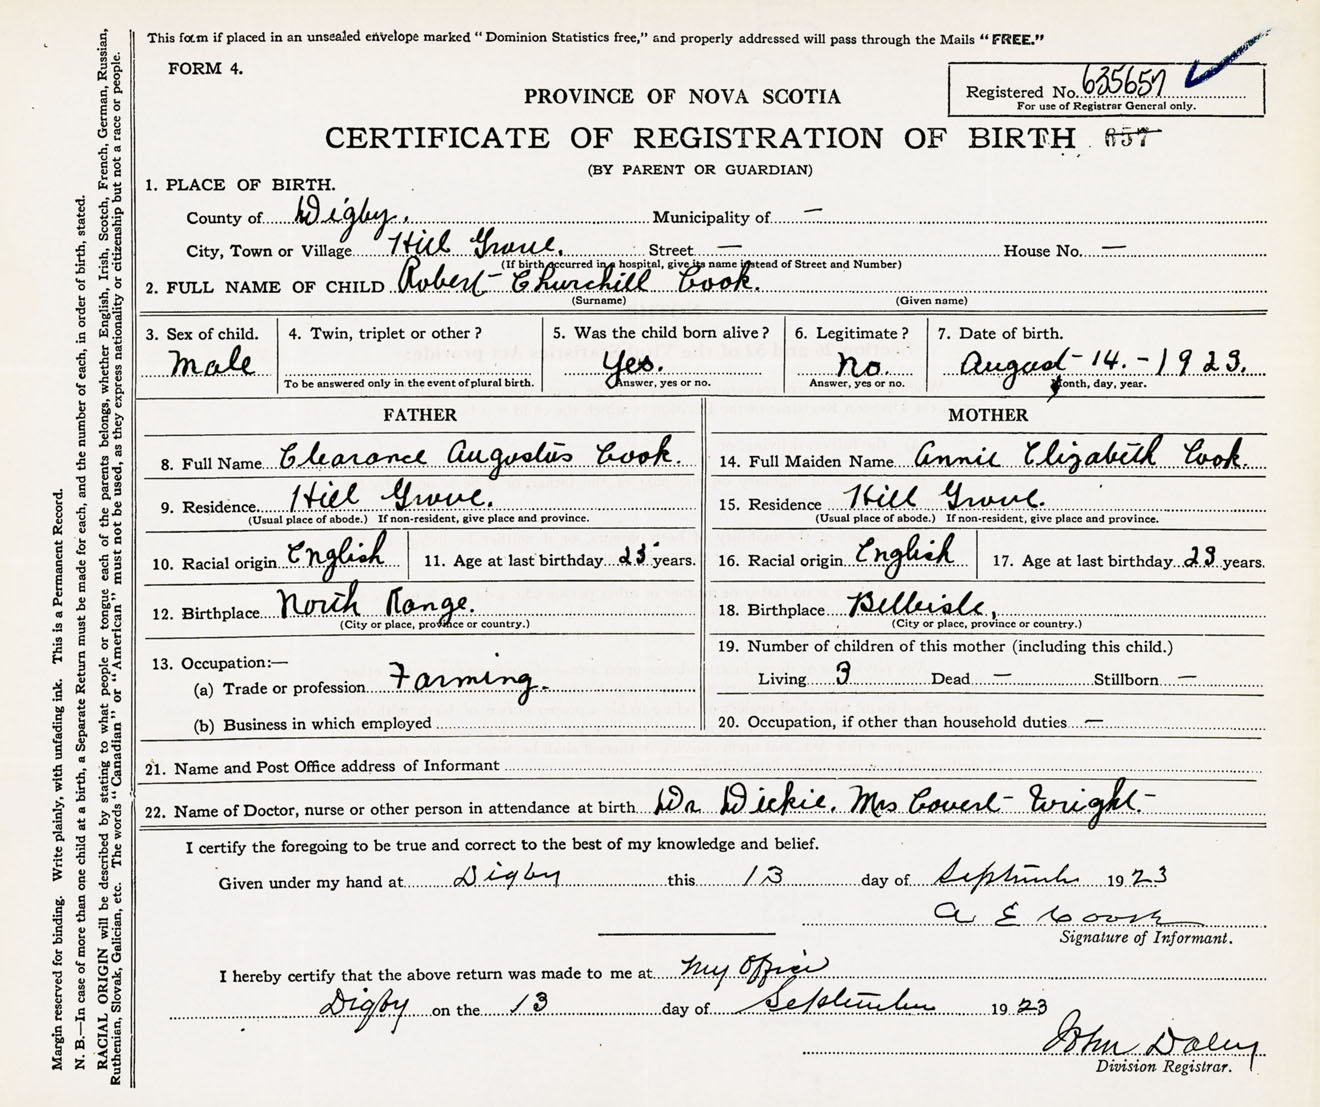 This form if placed in an unsealed envelope marked "Dominion Statistics free," and properly addressed will pass through the Mails "FREE."
FORM 4.
Registered No. 635657
For use of Registrar General only.
PROVINCE OF NOVA SCOTIA
CERTIFICATE OF REGISTRATION OF BIRTH 657
(BY PARENT OR GUARDIAN)
1. PLACE OF BIRTH.
County of Digby. Municipality of —
City, Town or Village Hill Grove. Street — House No. —
(If birth occurred in a hospital, give its name instead of Street and Number)
2. FULL NAME OF CHILD Robert Churchill Cook.
(Surname) (Given name)
3. Sex of child. 4. Twin, triplet or other? 5. Was the child born alive? 6. Legitimate? 7. Date of birth.
Male Yes. No. August - 14. - 1923.
To be answered only in the event of plural birth. Answer, yes or no. Answer, yes or no. Month, day, year.
FATHER MOTHER
8. Full Name Clearance Augustus Cook. 14. Full Maiden Name Annie Elizabeth Cook.
9. Residence Hill Grove. 15. Residence Hill Grove.
(Usual place of abode.) If non-resident, give place and province. (Usual place of abode.) If non-resident, give place and province.
10. Racial origin English 11. Age at last birthday 23 years. 16. Racial origin English 17. Age at last birthday 23 years.
12. Birthplace North Range. 18. Birthplace Bellisle,
(City or place, province or country.) (City or place, province or country.)
13. Occupation:— 19. Number of children of this mother (including this child.)
(a) Trade or profession Farming. Living 3 Dead — Stillborn —
(b) Business in which employed 20. Occupation, if other than household duties —
21. Name and Post Office address of Informant
22. Name of Doctor, nurse or other person in attendance at birth Dr Dickie. Mrs Covert Wright.
I certify the foregoing to be true and correct to the best of my knowledge and belief.
Given under my hand at Digby this 13 day of September 1923
A E Cook
Signature of Informant.
I hereby certify that the above return was made to me at My Office
Digby on the 13 day of September 1923
John Daley
Division Registrar.
Margin reserved for binding. Write plainly, with unfading ink. This is a Permanent Record.
N. B.—In case of more than one child at a birth, a Separate Return must be made for each, and the number of each, in order of birth, stated.
RACIAL ORIGIN will be described by stating to what people or tongue each of the parents belongs, whether English, Irish, Scotch, French, German, Russian,
Ruthenian, Slovak, Galician, etc. The words "Canadian" or "American" must not be used, as they express nationality or citizenship but not a race or people.